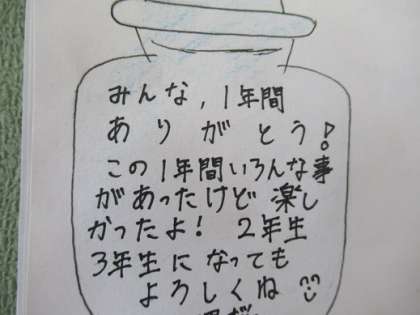 みんな,1年間
ありがとう!
この1年間いろんな事
があったけど楽し
かったよ! 2年生
3年生になっても
よろしくね